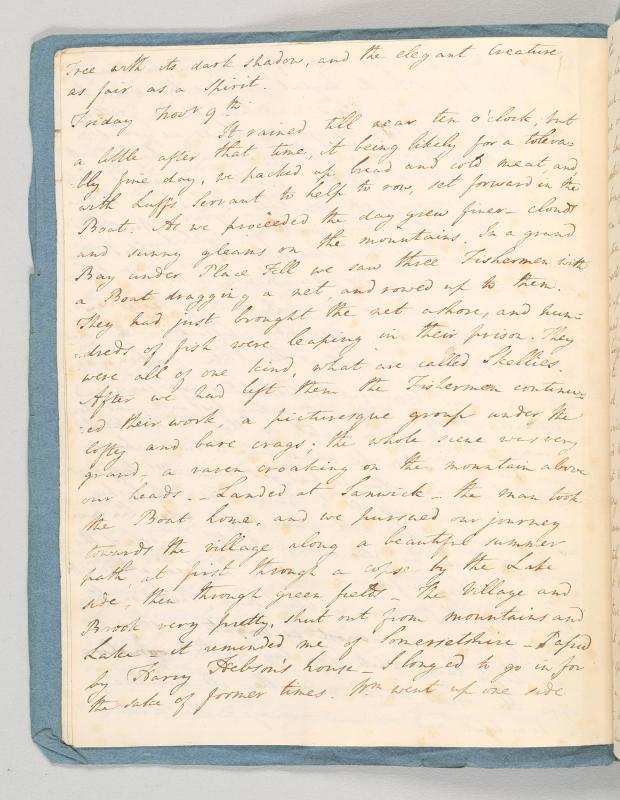 Tree with its dark shadow, and the elegant Creature
as fair as a Spirit.
Friday Novr 9th
It rained till near ten o'clock; but
a little after that time, it being likely for a tolera-
-bly fine day, we packed up bread and cold meat, and
with Luffs Servant to help to row, set forward in the
Boat. As we proceeded the day grew finer – clouds
and sunny gleams on the mountains. In a grand
Bay under Place Fell we saw three Fishermen with
a Boat dragging a net, and rowed up to them.
They had just brought the net ashore, and hun-
-dreds of fish were leaping in their prison. They
were all of one kind, what are called Skellies.
After we had left them the Fishermen continu-
-ed their work, a picturesque group under the
lofty and bare crags; the whole scene was very
grand – a raven croaking on the mountain above
our heads. – Landed at Sanwick – the man took
the Boat home, and we pursued our journey
towards the village along a beautiful summer
path, at first through a copse by the Lake
side, then through green fields – The Village and
Brook very pretty, shut out from mountains and
Lake – it reminded me of Somersetshire – Passed
by Harry Hebson's house – I longed to go in for
the sake of former times. Wm went up one side